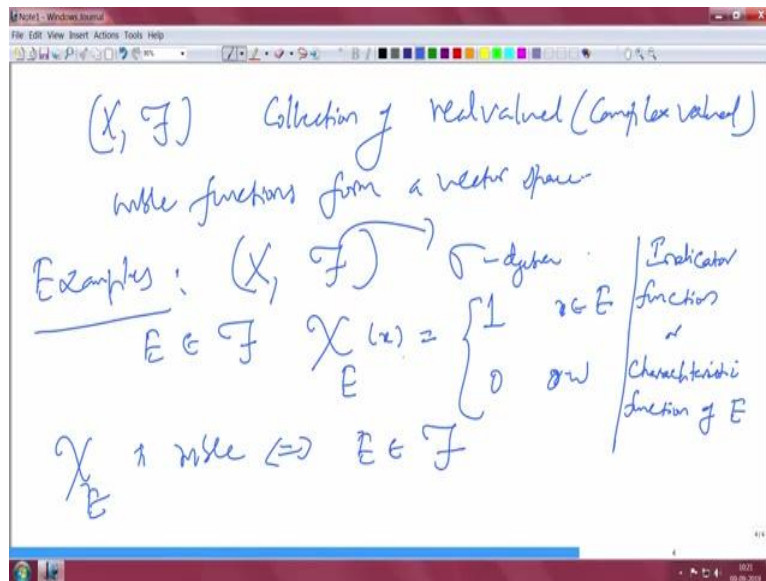 Note1 - Windows Journal
File Edit View Insert Actions Tools Help
(X, F) Collection of real valued (Complex valued)
mble functions form a vector space
Examples : (X, F) → σ-algebra
E ∈ F χ_E (x) = { 1 x ∈ E
0 o.w
Indicator
function
or
Characteristic
function of E
χ_E is mble <=> E ∈ F
4/4
4
10:21